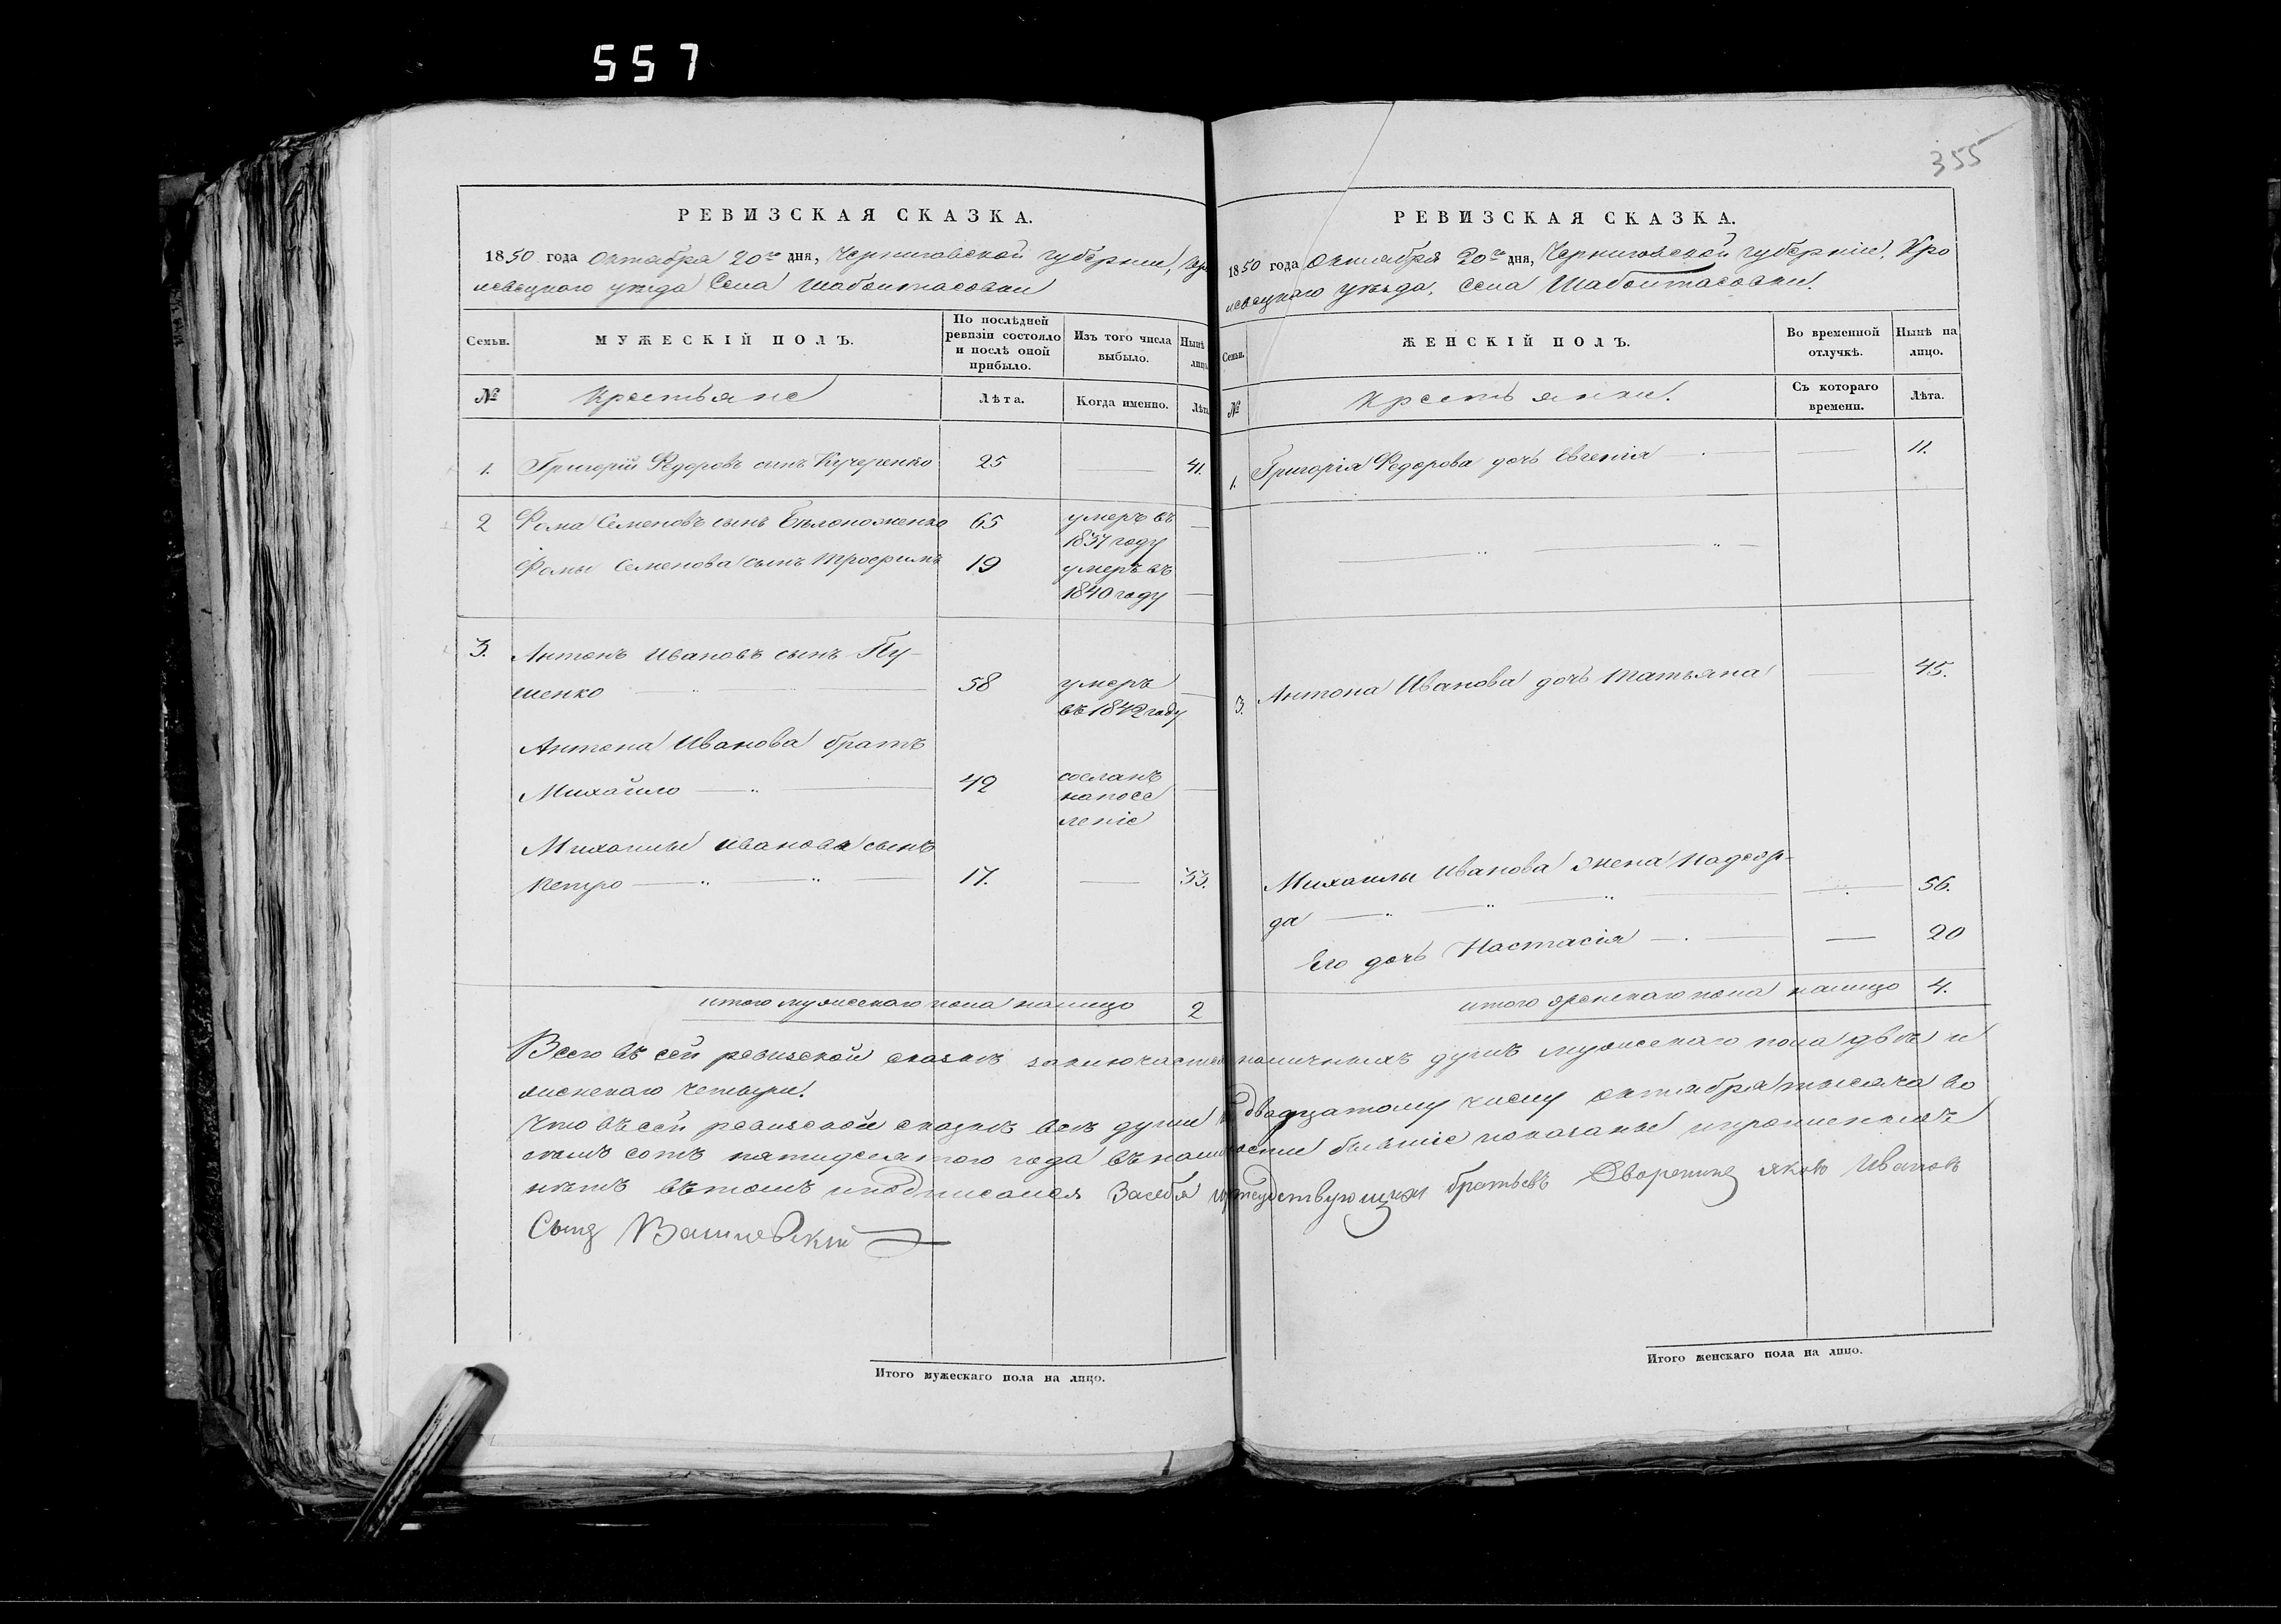 557
355
РЕВИЗСКАЯ СКАЗКА.
1850 года Октября 20го дня, Черниговской губерніи, Кро
левецкаго уѣзда Села Шабалтасовки
Семьи.
МУЖЕСКІЙ ПОЛЪ.
По послѣдней ревизіи состояло и послѣ оной прибыло.
Изъ того числа выбыло.
Нынѣ лицо
№
Крестьяне
Лѣта.
Когда именно.
Лѣта
1. Григорій Федоровъ сынъ Кучеренко 25 — 41.
2 Фома Семеновъ сынъ Бѣлоноженко 65 умеръ въ
1837 году
Фомы Семенова сынъ Трофимъ 19 умеръ въ
1840 году
3. Антонъ Ивановъ сынъ Пу-
шенко 58 умеръ
въ 1842 году
Антона Иванова братъ
Михайло 42 сосланъ
на посе
леніе
Михайлы Иванова сынъ
Петро 17. — 33.
итого мужескаго пола налицо 2
РЕВИЗСКАЯ СКАЗКА.
1850 года Октября 20го дня, Черниговской губерніи, Кро
левецкаго уѣзда, Села Шабалтасовки.
Семьи.
ЖЕНСКІЙ ПОЛЪ.
Во временной отлучкѣ.
Нынѣ на лицо.
№
Крестьянки.
Съ котораго времени.
Лѣта.
1. Григорія Федорова дочь Евгенія — 11.
3. Антона Иванова дочь Татьяна — 45.
Михайлы Иванова жена Надеж-
да — 56.
Его дочь Настасія — 20
итого женскаго пола налицо 4.
Всего въ сей ревизской сказкѣ заключается наличныхъ душъ мужескаго пола двѣ и
женскаго четыри.
Что въ сей ревизской сказкѣ всѣ души къ двадцатому числу октября тысяча во
семь сотъ пятидесятого года въ наличности бывшіе показаны и прописныхъ
нѣтъ въ томъ и подписался За себя и братьевъ Дворянинъ Яковъ Ивановъ
Сынъ
Итого мужескаго пола на лицо.
Итого женскаго пола на лицо.